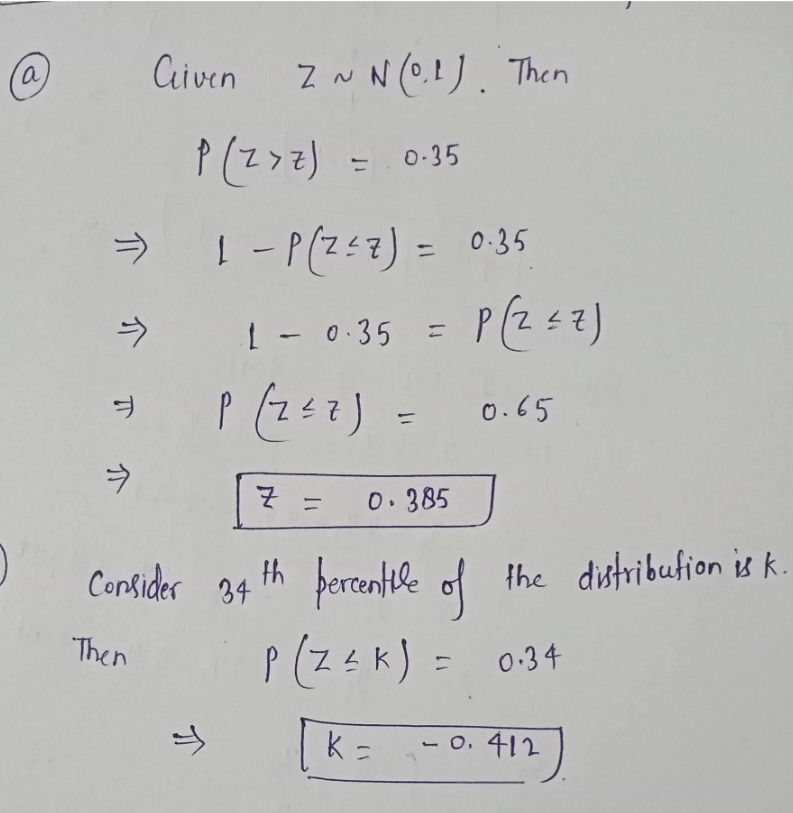 (a) Given Z ~ N(0,1). Then
P(Z>z) = 0.35
⇒ 1 - P(Z≤z) = 0.35
⇒ 1 - 0.35 = P(Z≤z)
⇒ P(Z≤z) = 0.65
⇒ z = 0.385
) Consider 34th percentile of the distribution is k.
Then P(Z≤k) = 0.34
⇒ k = -0.412